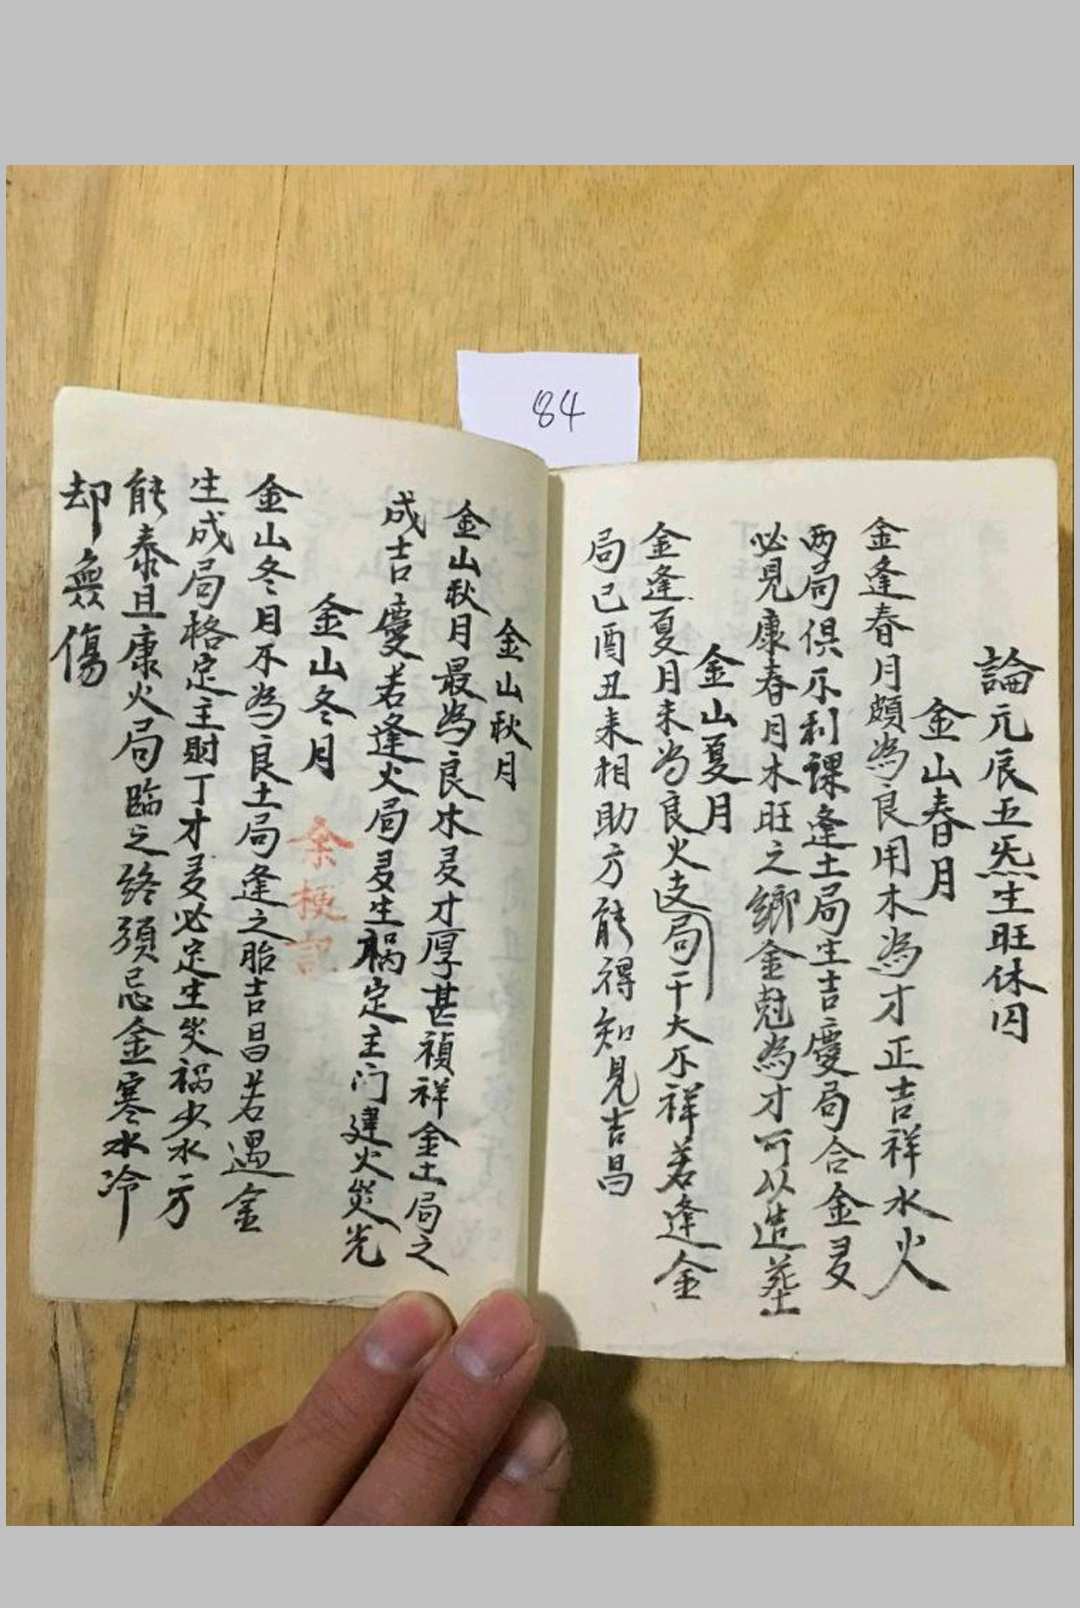 84
論元辰五炁生旺休囚
金山春月
金逢春月頗為良用木為才正吉祥水火
两局俱不利課逢土局生吉慶局合金旻
必見康春月木旺之鄉金尅為才可以造塟
金山夏月
金逢夏月未為良火支局干大不祥若逢金
局己酉丑来相助方能得知見吉昌
金山秋月
金山秋月最為良木旻才厚甚禎祥金土局之
成吉慶若逢火局旻生禍定主门建火災光
金山冬月 余梗記
金山冬月不為良土局逢之胎吉昌若遇金
生成局格定主財丁才旻必定生災禍少水方
能泰且康火局臨之終須忌金寒水冷
却無傷